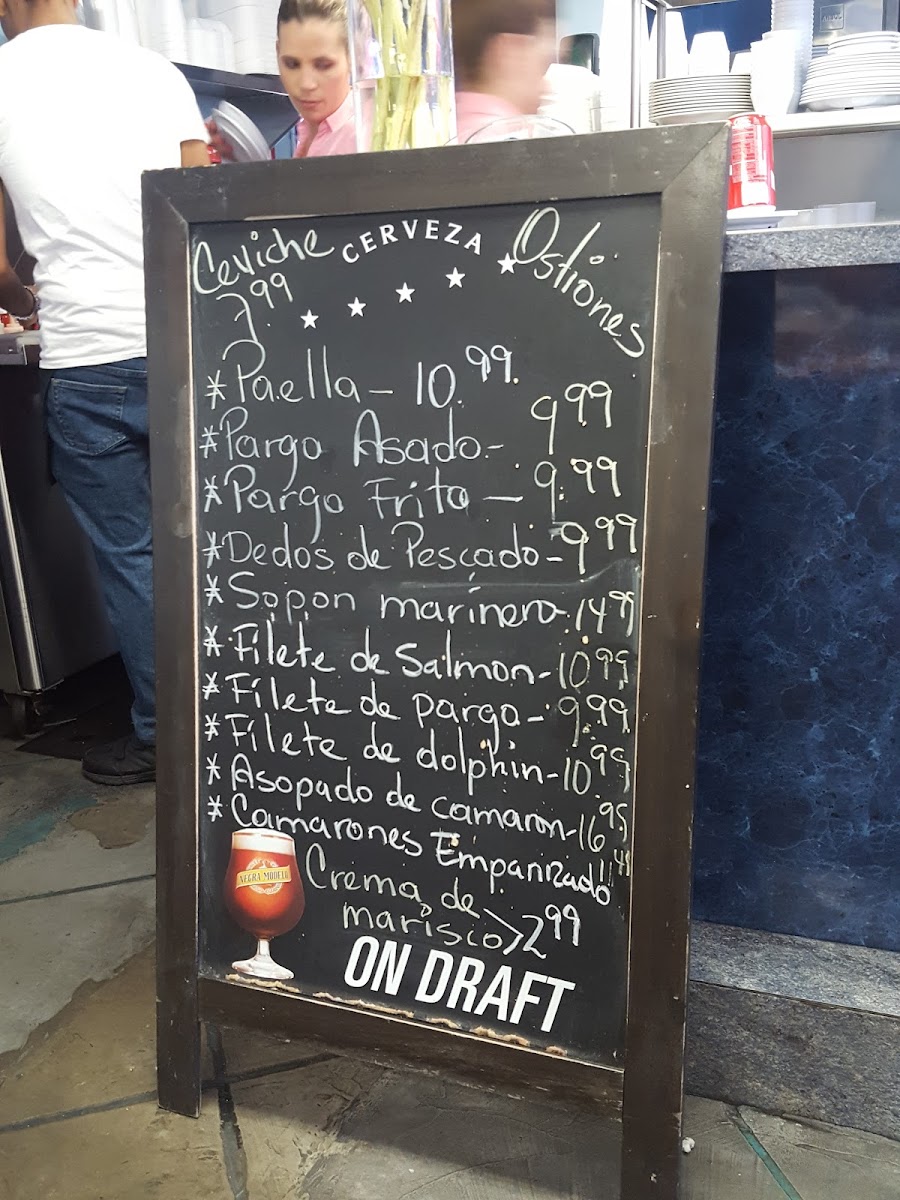 Ceviche
7.99
CERVEZA
Ostiones
*Paella - 10.99
*Pargo Asado - 9.99
*Pargo Frito - 9.99
*Dedos de Pescado - 9.99
*Sopon marinero - 14.95
*Filete de Salmon - 10.95
*Filete de pargo - 9.99
*Filete de dolphin - 10.95
*Asopado de camaron - 16.95
*Camarones Empanizado
Crema de
marisco > 2.99
NEGRA MODELO
ON DRAFT